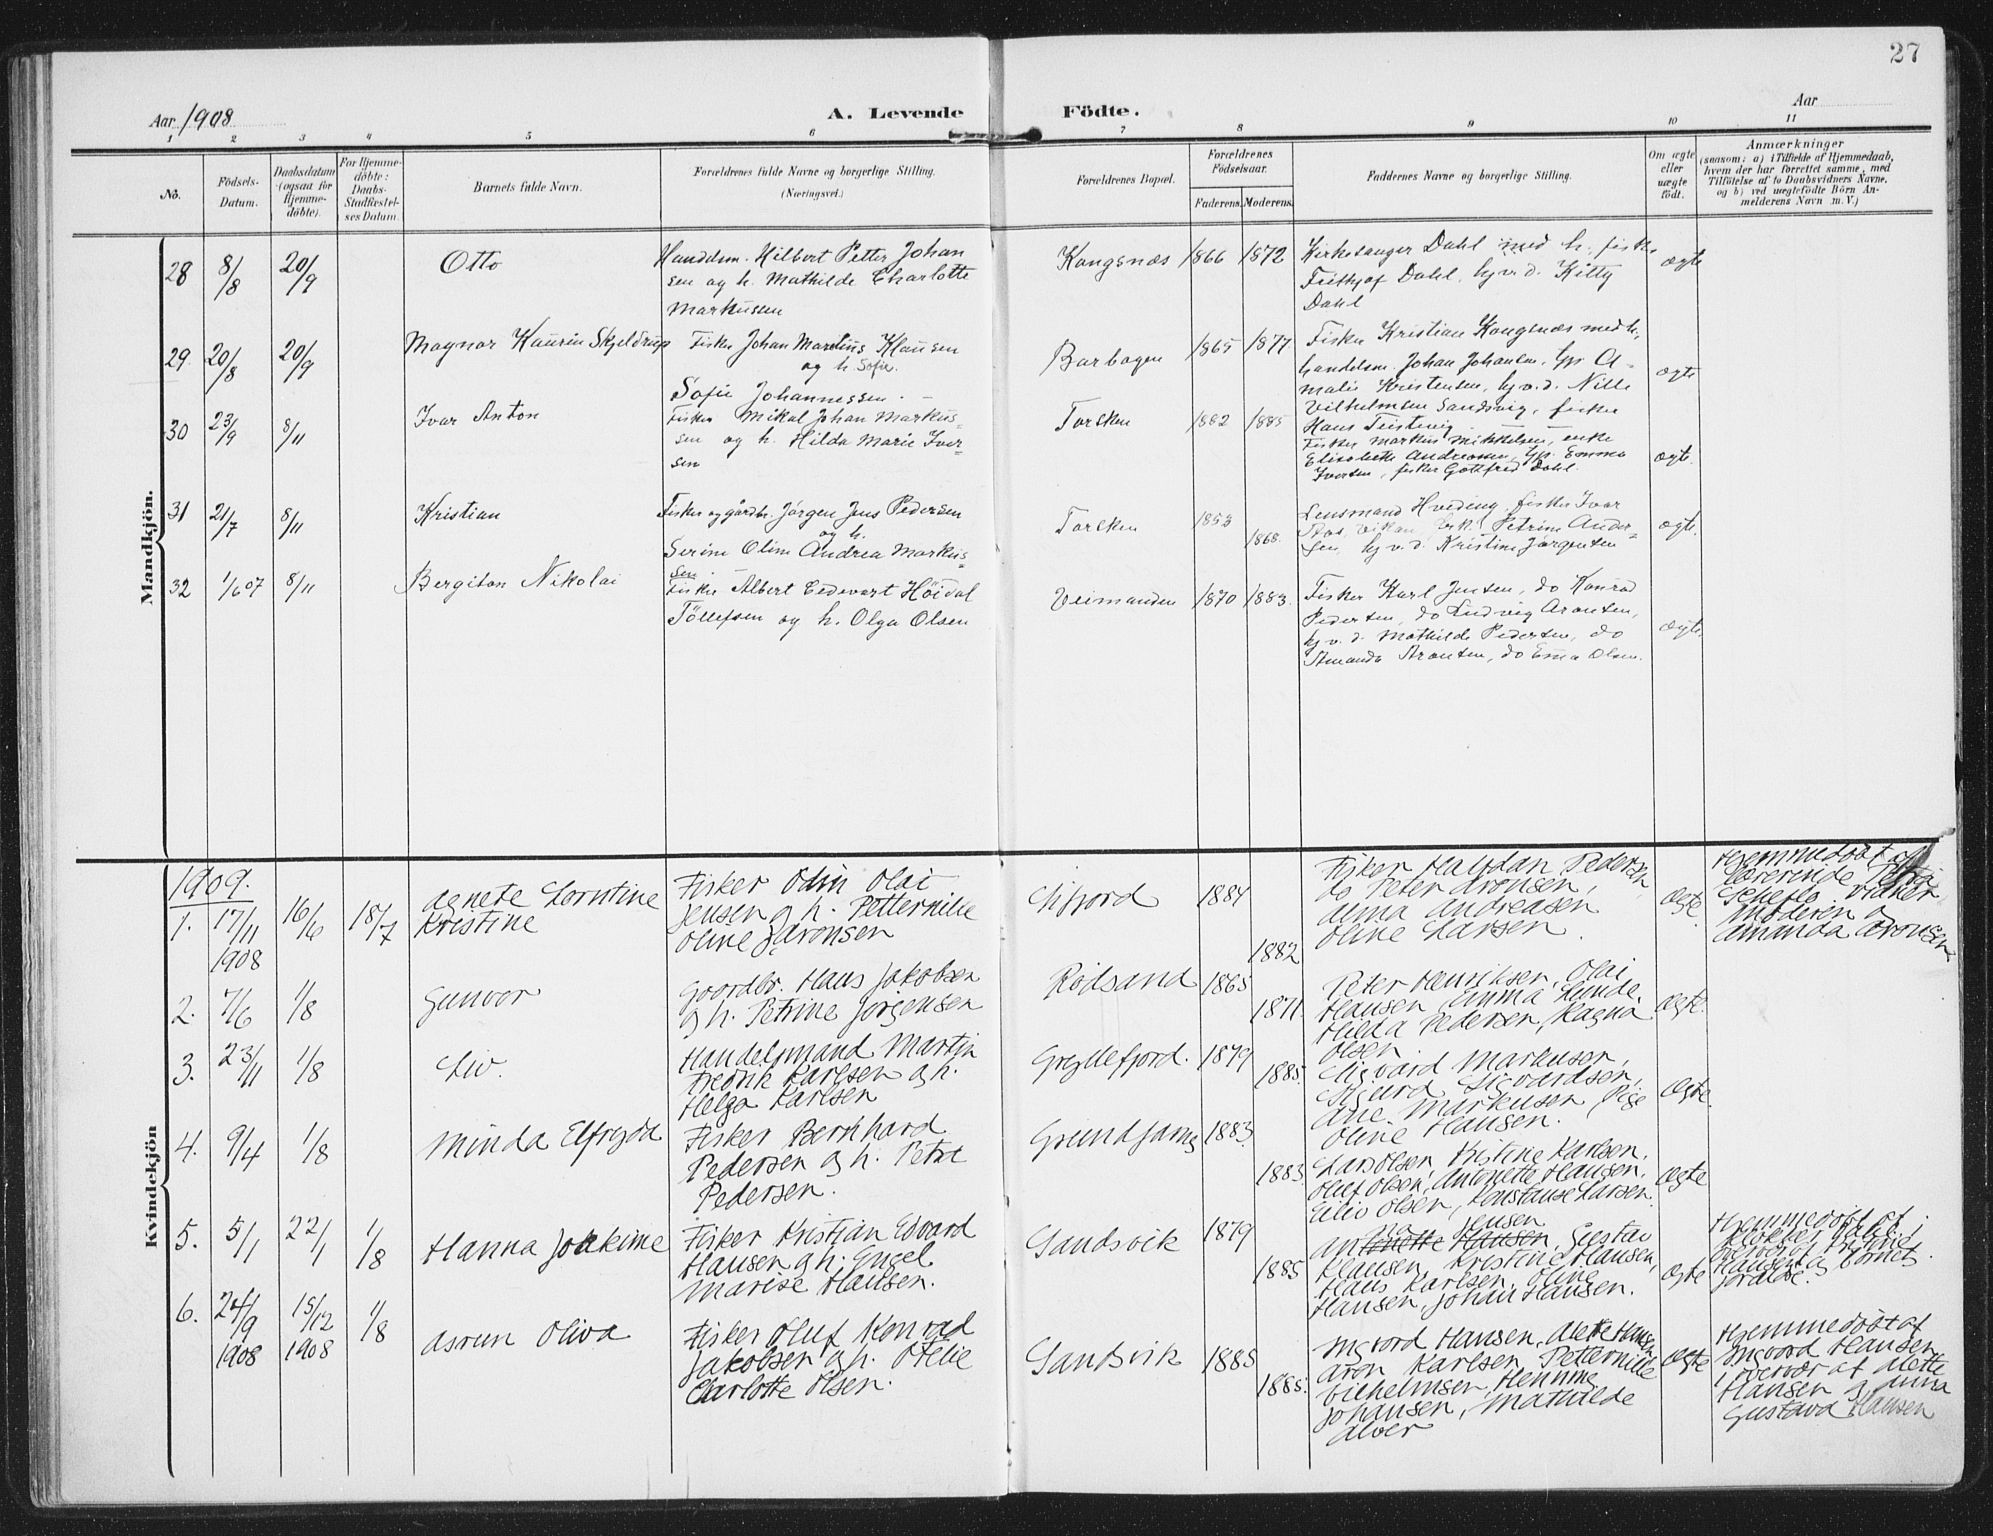 27
Aar 1908
A. Levende
Födte.
Aar
1 2 3 4 5 6 7 8 9 10 11
No.
Födsels-Datum.
Daabsdatum (ogsaa for Hjemme-døbte).
For Hjemme-døbte: Daabs-Stadfæstel-ses Datum.
Barnets fulde Navn.
Forældrenes fulde Navne og borgerlige Stilling.
(Næringsvei.)
Forældrenes Bopæl.
Forældrenes Födselsaar.
Faderens. Moderens.
Faddernes Navne og borgerlige Stilling.
Om ægte eller uægte födt.
Anmærkninger
(saasom: a) i Tilfælde af Hjemmedaab,
hvem der har forrettet samme, med
Tilföielse af to Daabsvidners Navne,
og b) ved uægtefödte Börn An-
melderens Navn m. V.)
Mandkjön.
28 8/8 20/9 Otto
Handelsm. Hilbert Petter Johan
sen og h. Mathilde Charlotte
Markussen
Kongsnæs 1866 1872
Kirkesanger Dahl med h. fisker
Frithjof Dahl, hj.v.d. Kitty
Dahl
ægte
29 20/8 20/9 Magnor Kaurin Skjeldrup
Fisker Johan Martius Klausen
og h. Sofie.
Sofie Johannessen. -
Barbogen 1865 1877.
Fisker Kristian Kongsnæs med h.
handelsm. Johan Johansen, tp. A-
malie Kristensen, hj.v.d. Nille
Vilhelmsen Sandsvig, fisker
Hans Teistevig
ægte
30 23/9 8/11 Ivar Anton
Fisker Mikal Johan Markus-
sen og h. Hilda Marie Iver-
sen
Torsken 1882 1885
Fisker Markus Mikkelsen, enke
Elisabeth Andreasen, tp. Emma
Iversen, fisker Gottfred Dahl.
ægte.
31 21/7 8/11 Kristian
Fisker og gårdbr. Jørgen Jens Pedersen
og h.
Serine Oline Andrea Markus-
sen.
Torsken 1853 1868.
Lensmand Hveding, fisker Ivar
Petrine Ander-
sen, hj.v.d. Kristine Jørgensen
ægte.
32 1/6 07 8/11 Bergiton Nikolai
Fisker Albert Edevart Höidal
Töllefsen og h. Olga Olsen
Veimanden 1870 1883.
Fisker Karl Jensen, do Konrad
Pedersen, do Ludvig Aronsen,
hj.v.d. Mathilde Pedersen, do
Amanda Aronsen, do Emma Olsen.
ægte
Kvindekjön
1909.
1. 17/11 1908 16/6 18/7 Agnete Lorntine
Kristine
Fisker Odin Olai
Jensen og h. Petternilie
Oline Aronsen
Sifjord 1884 1882
Fisker Halvdan Pedersen
do Peter Aronsen,
Anna Andreasen
Oline Larsen.
Ægte.
Hjemmedøbt af
Lærerinde
Vidner
Moderen og
Amanda Aronsen
2. 7/6 1/8 Gunvor
Gaardbr. Hans Jakobsen
og h. Petrine Jørgensen
Rødsand 1865 1871
Peter Henriksen, Olai
Hansen, Emma Lunde,
Hilda Pedersen, Ragna
Olsen
Ægte.
3. 23/11 1/8 Liv.
Handelsmand Martin
Fredrik Karlsen og h.
Helga Karlsen
Gryllefjord. 1879 1885.
Sigvard Markusen,
Sigurd Sigvardsen,
Ane Markusen, Pige
Oline Hansen.
Ægte.
4. 9/4 1/8 Minda Elfryda
Fisker Bernhard
Pedersen og h. Petra
Pedersen.
Grundfarnes 1883. 1883.
Lars Olsen, Kristine Karlsen.
Oluf Olsen, Antonette Hansen.
Eiliv Olsen, Konstanse Larsen
Ægte
5. 5/1 22/1 1/8 Hanna Joakime
Fisker Kristian Edvard
Hansen og h. Engel
Marise Hansen.
Sandsvik 1879 1885
na Jensen
Antonette Hansen, Gustav
Klausen, Kristine Hansen,
Hans Karlsen, Oline
Hansen, Johan Hansen.
Ægte
Hjemmedøbt af
Klokker Dahl i
overvær af
Hansen og Barnets
forældre.
6. 24/9 1908 15/12 1908 1/8 Asrun Oliva
Fisker Oluf Konrad
Jakobsen og h. Otelie
Charlotte Olsen.
Sandsvik 1885 1885.
Ingvord Hansen, Alette Hansen
Aron Karlsen, Petternille
Vilhelmsen, Hemme
Johansen, Mathilde
Alver
Ægte
Hjemmedøbt af
Ingvord Hansen
i overvær af Alette
Hansen og Anna
Gustava Hansen